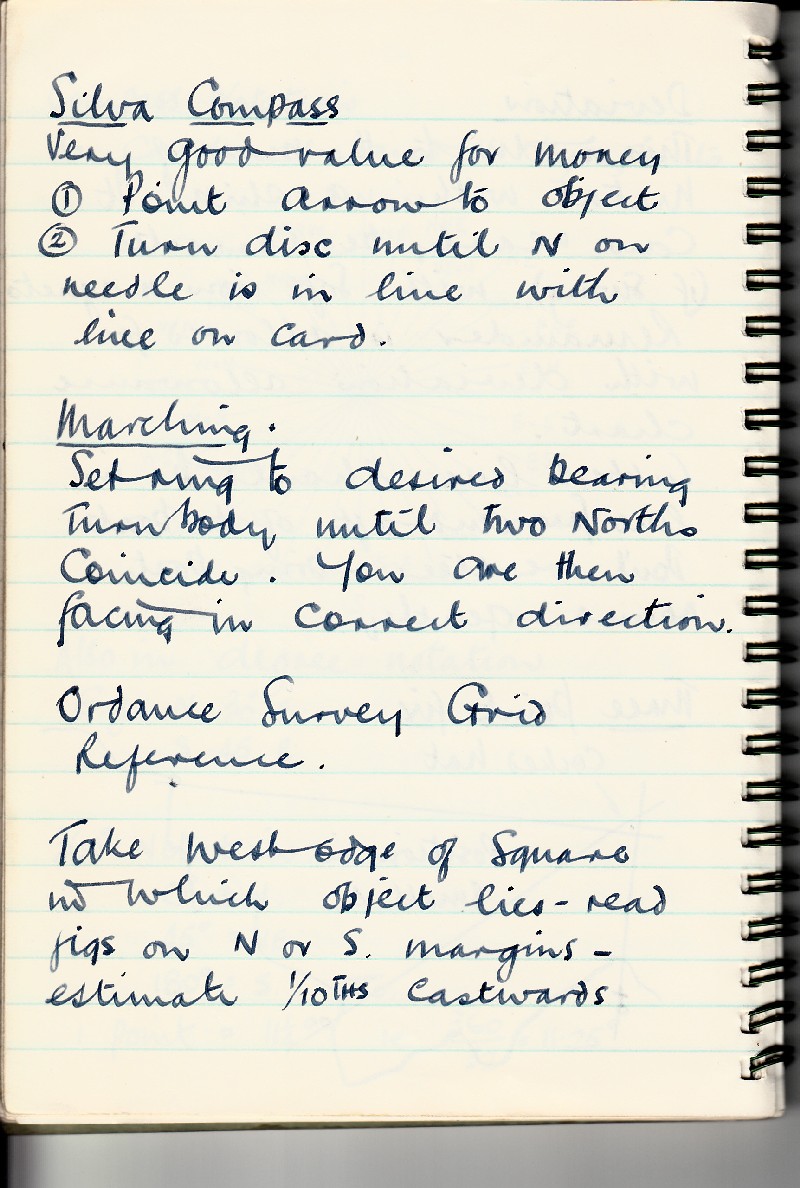 Silva Compass
Very good value for money
① Point arrow to object
② Turn disc until N on
needle is in line with
line on card.
Marching.
Set ring to desired bearing
Turn body until two Norths
Coincide. You are then
facing in correct direction.
Ordance Survey Grid
Reference.
Take West edge of Square
in which object lies - read
figs on N or S. margins -
estimate 1/10THS Eastwards